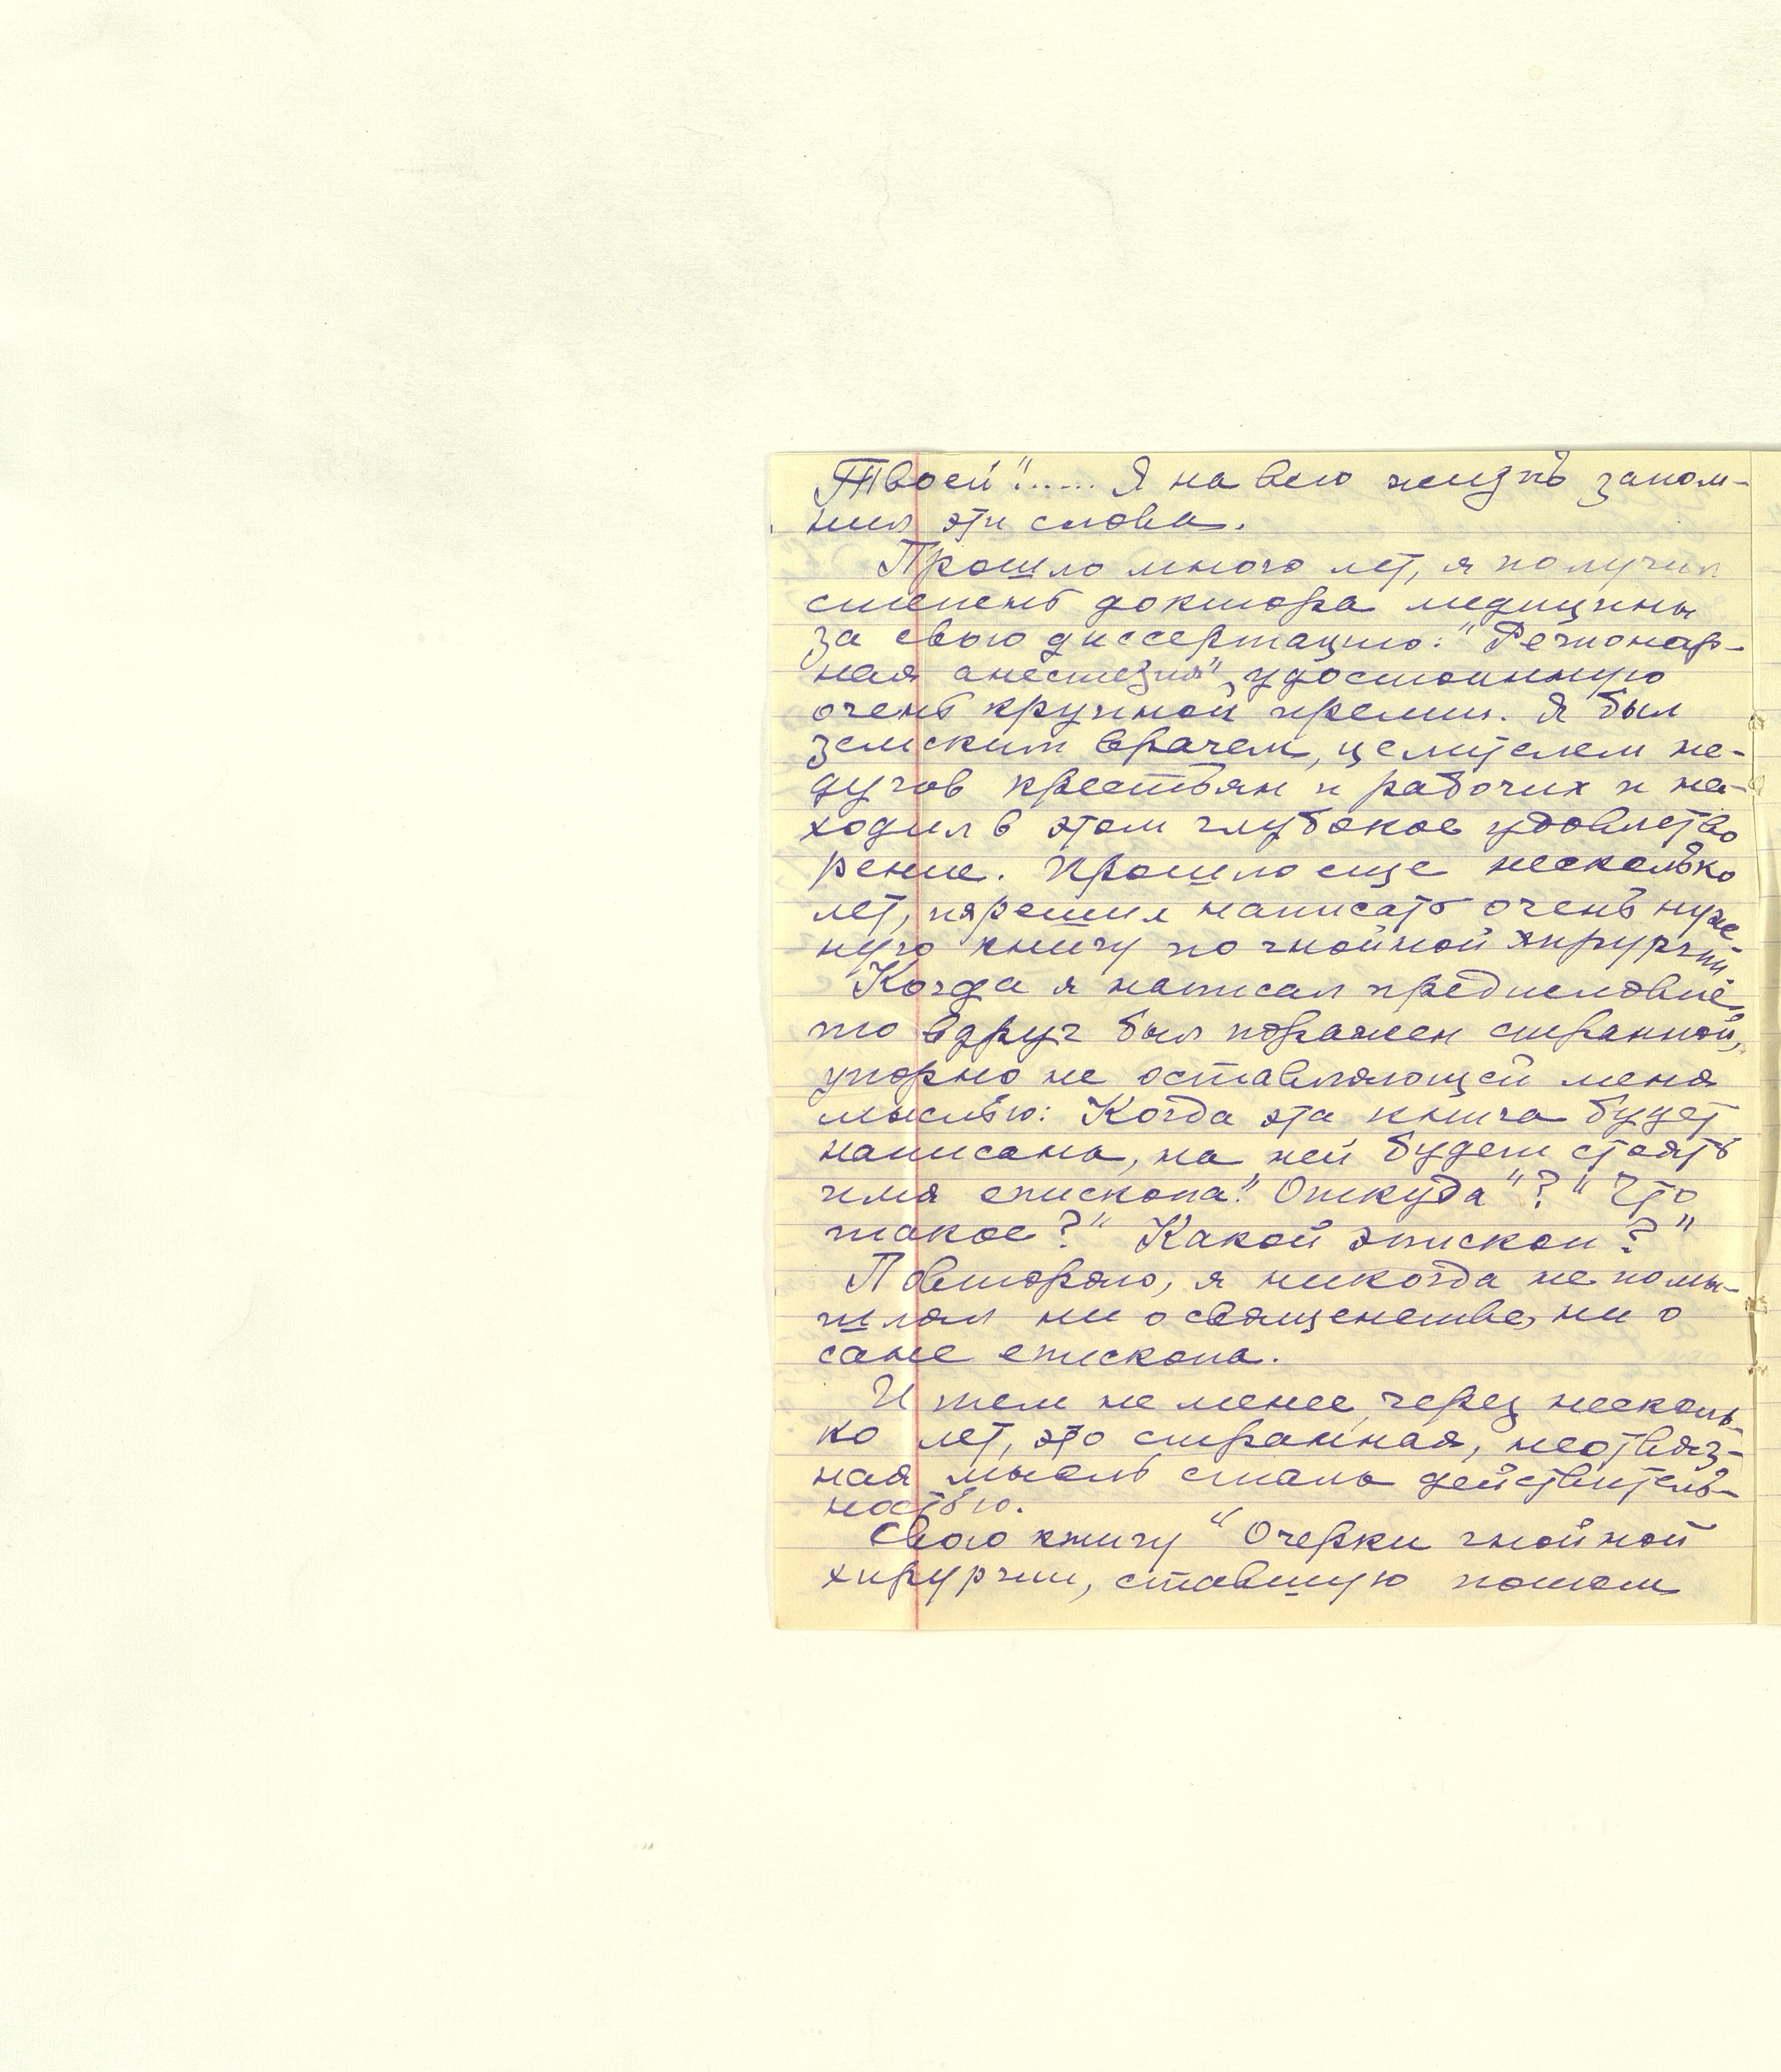 Твоей"!..... Я на всю жизнь запом-
нил эти слова.
Прошло много лет, я получил
степень доктора медицины
за свою диссертацию: "Регионар-
ная анестезия", удостоинную
очень крупной премии. Я был
земским врачем, целителем не-
дугов крестьян и рабочих и на-
ходил в этом глубокое удовлетво
рение. Прошло еще несколько
лет, я решил написать очень нуж-
ную книгу по гнойной хирургии.
Когда я написал предисловие,
то вдруг был поражен странной,
упорно не оставляющей меня
мыслью: Когда эта книга будет
написана, на ней будет стоять
имя епископа." Откуда"? "Что
такое?" Какой эпископ?"
Повторяю, я никогда не помы-
шлял ни о священстве, ни о
сане епископа.
И тем не менее, через несколь-
ко лет, это странная, неотвяз-
ная мысль стала действитель-
ностью.
Свою книгу "Очерки гнойной
хирургии, ставшую потом